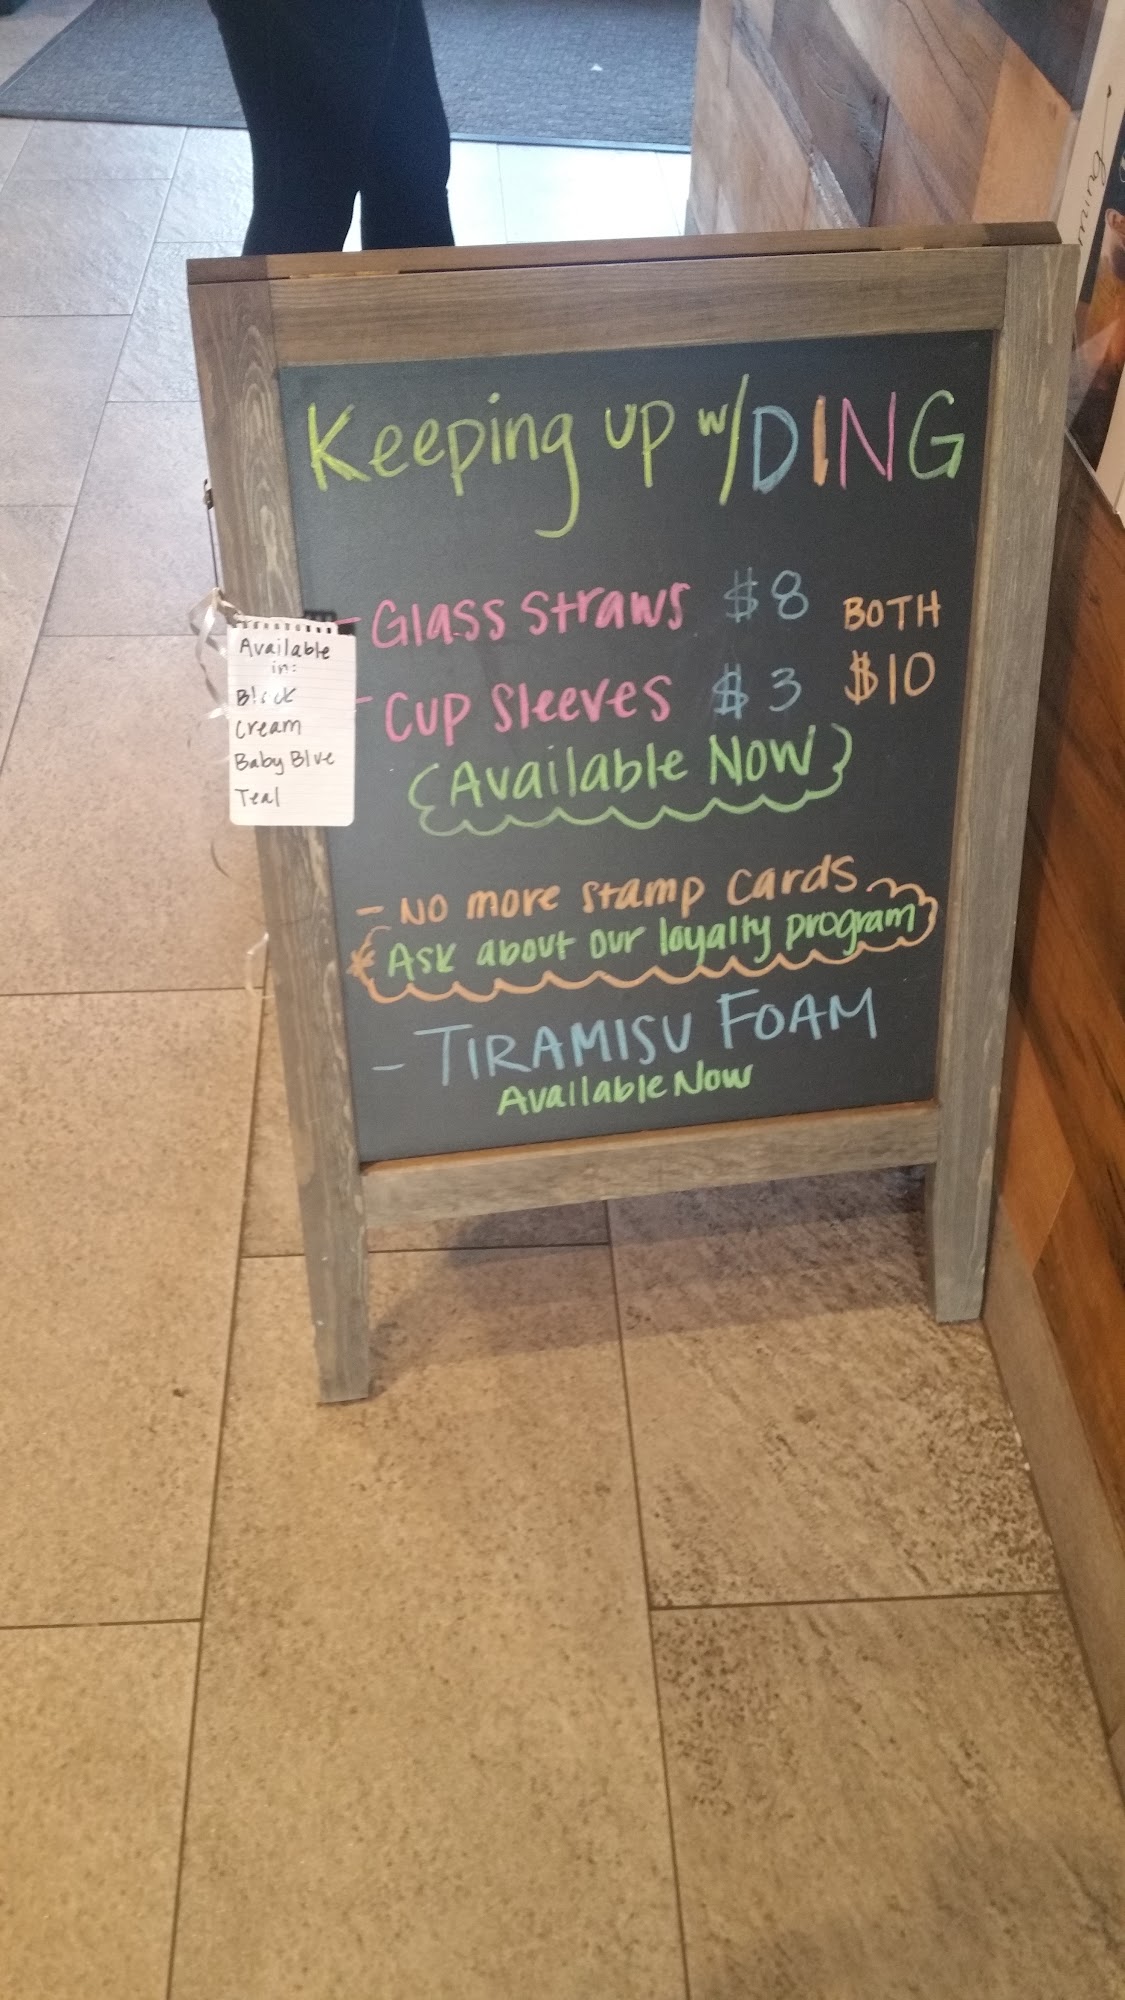 Keeping up w/ DING
- Glass Straws $8
- Cup Sleeves $3
BOTH
$10
{Available Now}
Available
in:
Black
Cream
Baby Blue
Teal
- No more stamp cards
* Ask about our loyalty program
- TIRAMISU FOAM
Available Now